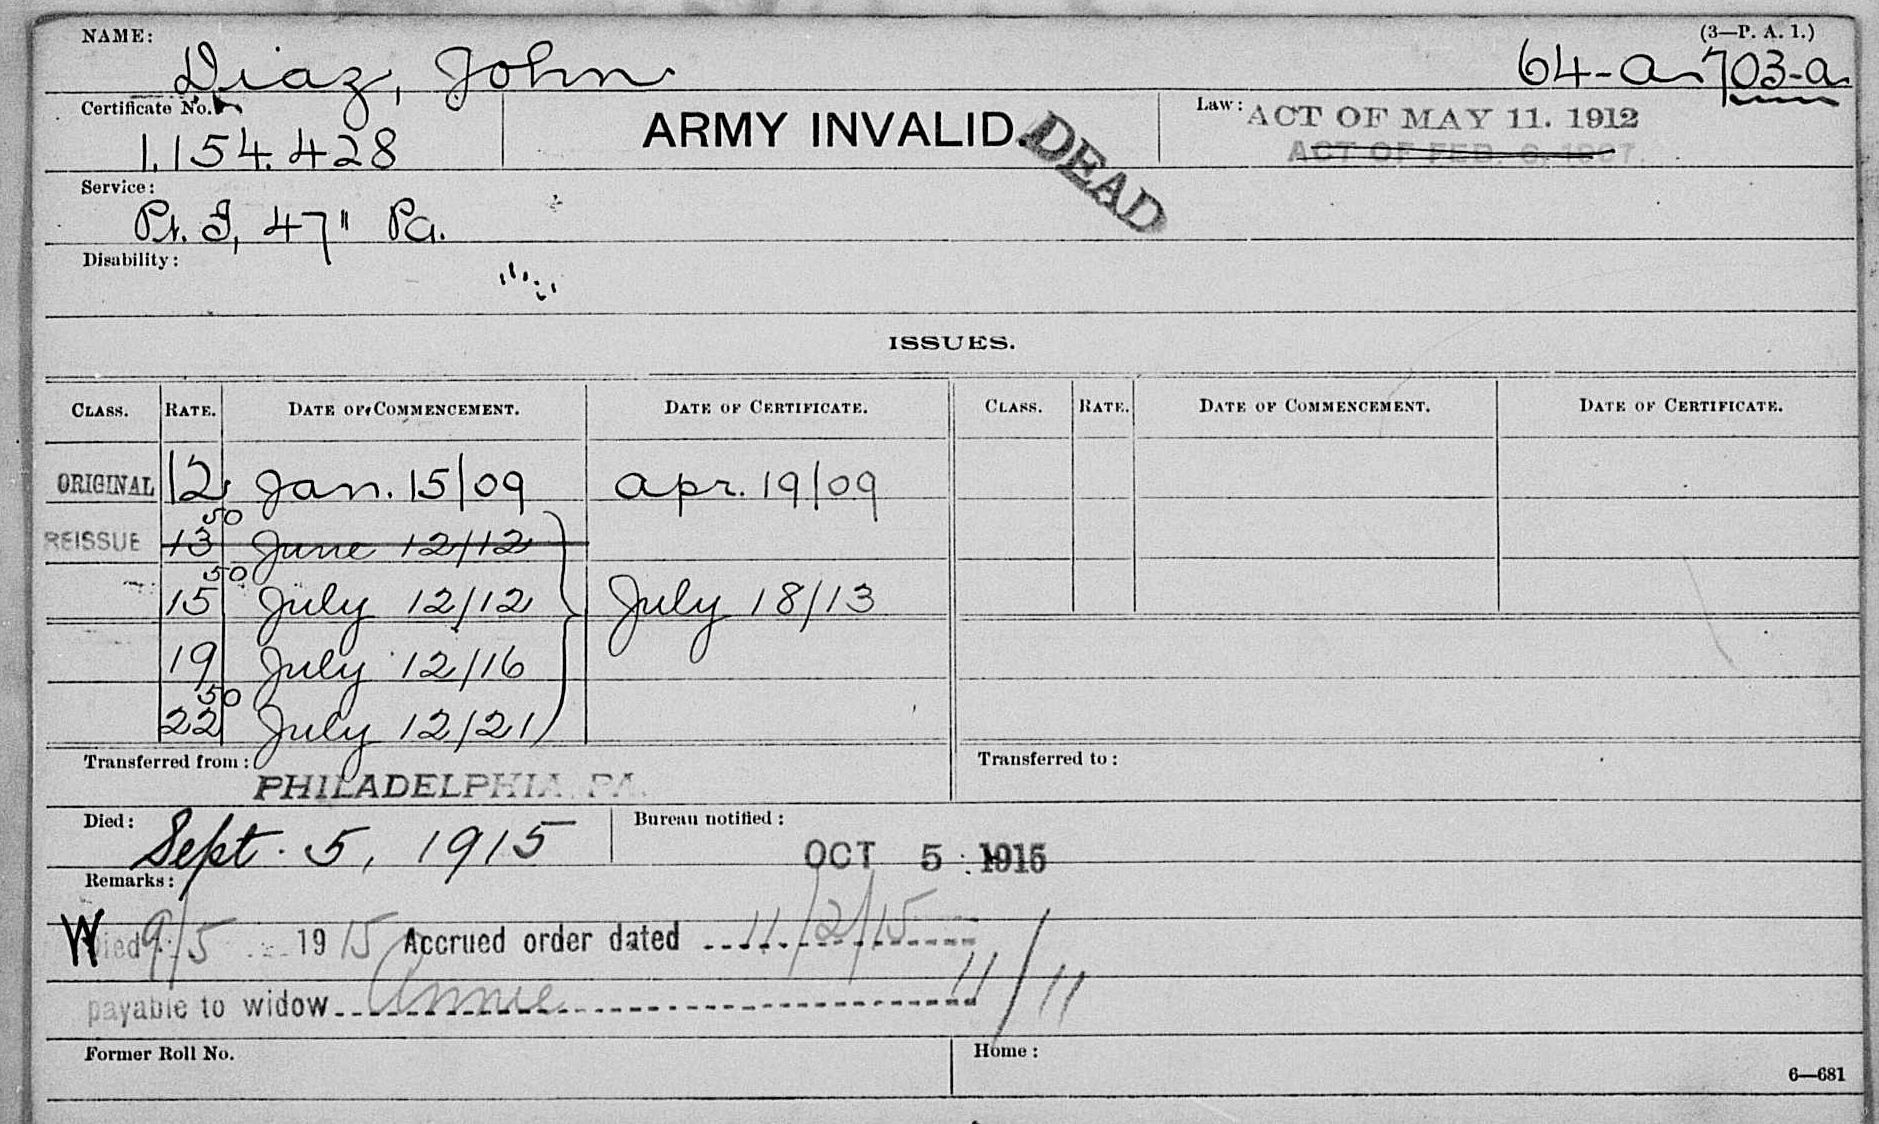 NAME: (3—P. A. 1.)
Diaz, John 64-a-703-a
Certificate No. ARMY INVALID. DEAD Law: ACT OF MAY 11. 1912
1,154.428 ACT OF FEB. 6, 1907.
Service:
Pt. I, 47" Pa.
Disability:
ISSUES.
CLASS. RATE. DATE OF COMMENCEMENT. DATE OF CERTIFICATE. CLASS. RATE. DATE OF COMMENCEMENT. DATE OF CERTIFICATE.
ORIGINAL 12 Jan. 15/09 Apr. 19/09
REISSUE 13 50 June 12/12
15 50 July 12/12 July 18/13
19 July 12/16
22 50 July 12/21
Transferred from: PHILADELPHIA PA. Transferred to:
Died: Sept. 5, 1915 Bureau notified: OCT 5 1915
Remarks:
W Died 9/5 1915 Accrued order dated 11/2/15
payable to widow Annie 11/11
Former Roll No. Home:
6—681